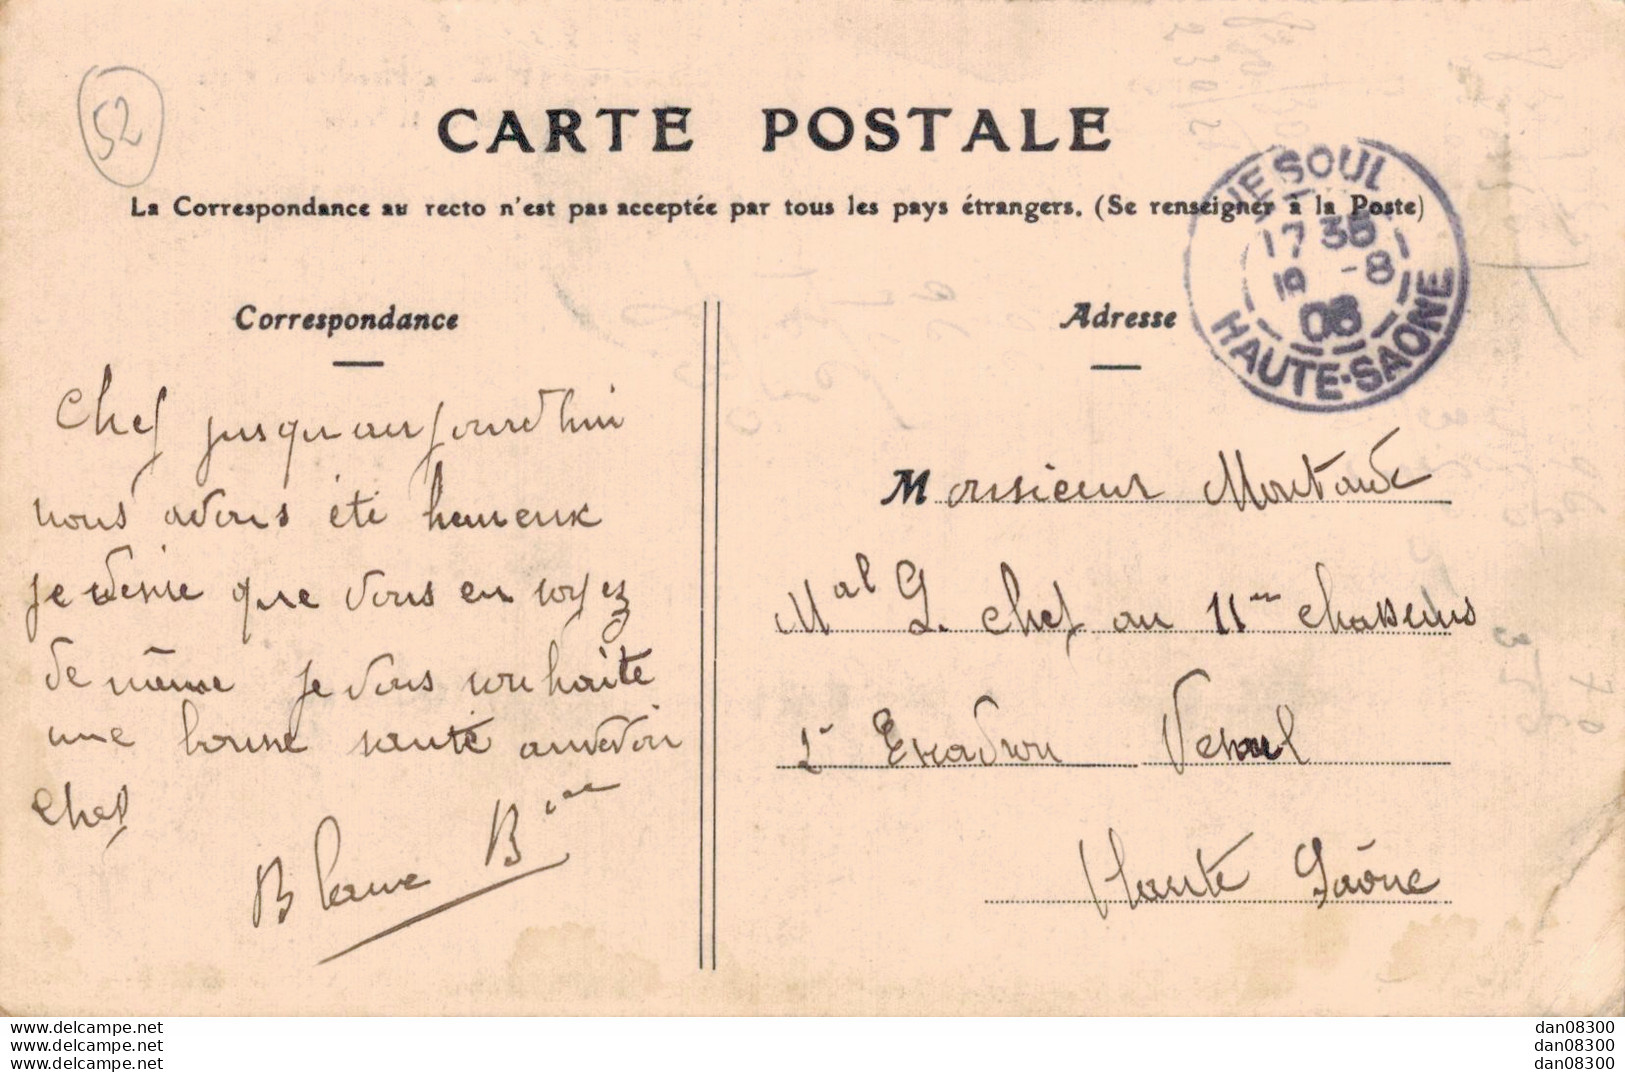 52
CARTE POSTALE
La Correspondance au recto n'est pas acceptée par tous les pays étrangers. (Se renseigner à la Poste)
VESOUL
17 35
19 -8
08
HAUTE-SAONE
Correspondance
Chef jusqu'aujourd'hui
nous avons été heureux
je desire que vous en soyez
de même je vous souhaite
une bonne santé aurevoir
chef
Blanc
Adresse
Monsieur Montand
Mal L. chef au 11me chasseurs
Escadron Vesoul
Haute Saône
www.delcampe.net
www.delcampe.net
www.delcampe.net
dan08300
dan08300
dan08300